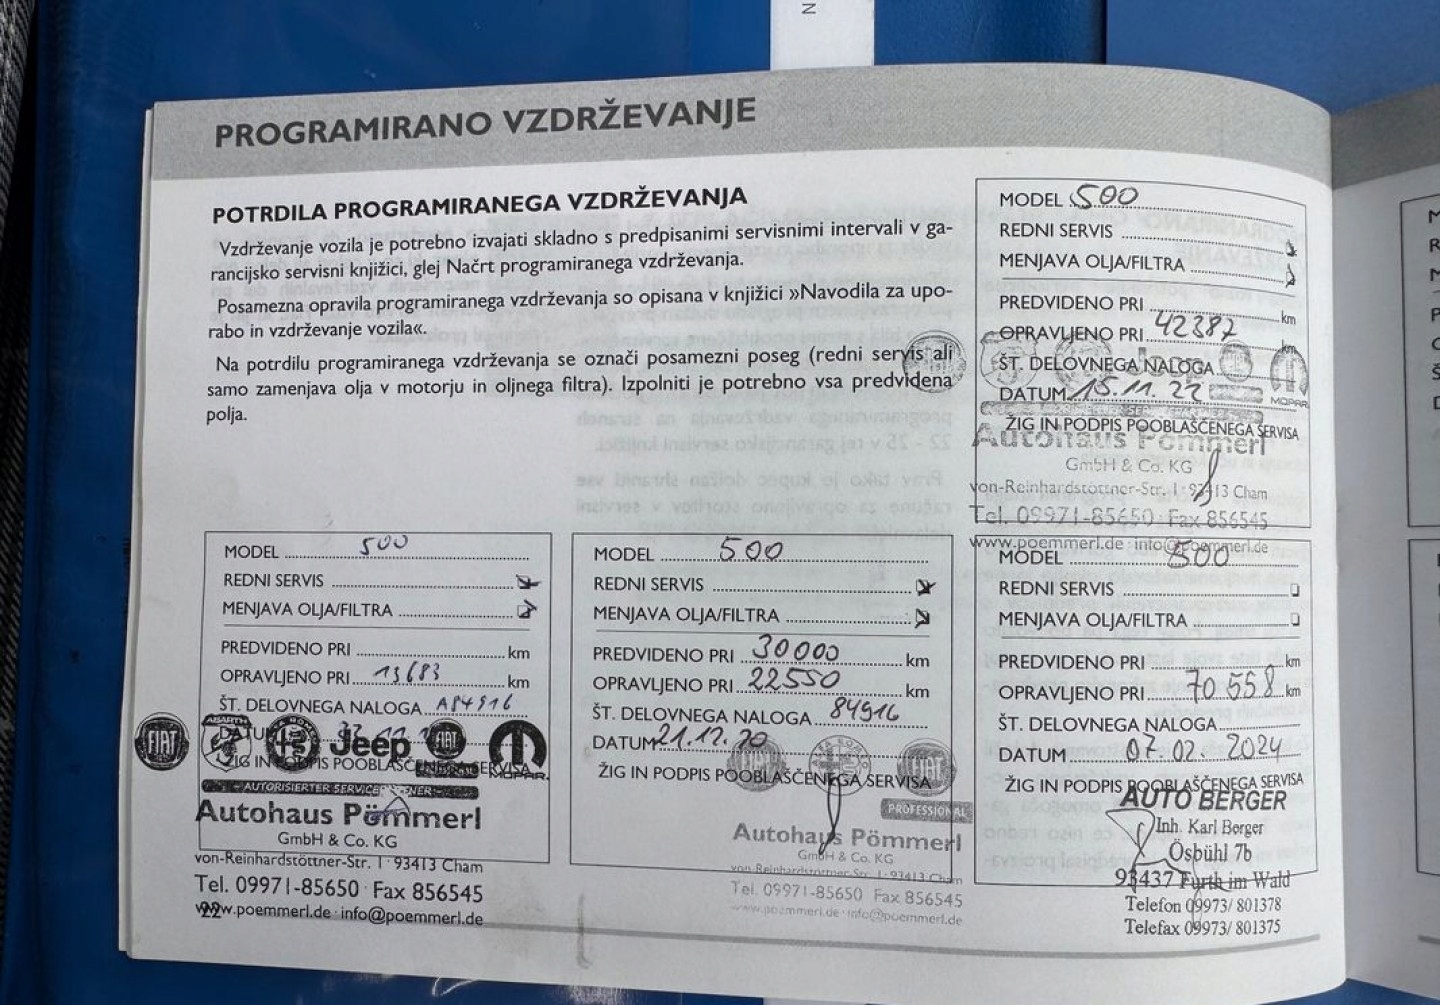 PROGRAMIRANO VZDRŽEVANJE
POTRDILA PROGRAMIRANEGA VZDRŽEVANJA
Vzdrževanje vozila je potrebno izvajati skladno s predpisanimi servisnimi intervali v ga-
rancijsko servisni knjižici, glej Načrt programiranega vzdrževanja.
Posamezna opravila programiranega vzdrževanja so opisana v knjižici »Navodila za upo-
rabo in vzdrževanje vozila«.
Na potrdilu programiranega vzdrževanja se označi posamezni poseg (redni servis ali
samo zamenjava olja v motorju in oljnega filtra). Izpolniti je potrebno vsa predvidena
polja.
MODEL 500
REDNI SERVIS
MENJAVA OLJA/FILTRA
PREDVIDENO PRI km
OPRAVLJENO PRI 42387 km
ŠT. DELOVNEGA NALOGA
DATUM 15.11.22
MOPAR
ŽIG IN PODPIS POOBLAŠČENEGA SERVISA
Autohaus Pömmerl
GmbH & Co. KG
von-Reinhardstöttner-Str. 1 · 93413 Cham
Tel. 09971-85650 · Fax 856545
www.poemmerl.de · info@poemmerl.de
MODEL 500
REDNI SERVIS
MENJAVA OLJA/FILTRA
PREDVIDENO PRI km
OPRAVLJENO PRI 13683 km
ŠT. DELOVNEGA NALOGA A84916
DATUM
FIAT ABARTH Jeep FIAT MOPAR
ŽIG IN PODPIS POOBLAŠČENEGA SERVISA
AUTORISIERTER SERVICEPARTNER
Autohaus Pömmerl
GmbH & Co. KG
von-Reinhardstöttner-Str. 1 · 93413 Cham
Tel. 09971-85650 · Fax 856545
www.poemmerl.de · info@poemmerl.de
22
MODEL 500
REDNI SERVIS
MENJAVA OLJA/FILTRA
PREDVIDENO PRI 30000 km
OPRAVLJENO PRI 22550 km
ŠT. DELOVNEGA NALOGA 84916
DATUM 21.12.20
FIAT
ŽIG IN PODPIS POOBLAŠČENEGA SERVISA
PROFESSIONAL
Autohaus Pömmerl
GmbH & Co. KG
von-Reinhardstöttner-Str. 1 · 93413 Cham
Tel. 09971-85650 · Fax 856545
www.poemmerl.de · info@poemmerl.de
MODEL 500
REDNI SERVIS
MENJAVA OLJA/FILTRA
PREDVIDENO PRI km
OPRAVLJENO PRI 70558 km
ŠT. DELOVNEGA NALOGA
DATUM 07.02.2024
ŽIG IN PODPIS POOBLAŠČENEGA SERVISA
AUTO BERGER
Inh. Karl Berger
Ösbühl 7b
93437 Furth im Wald
Telefon 09973/ 801378
Telefax 09973/ 801375